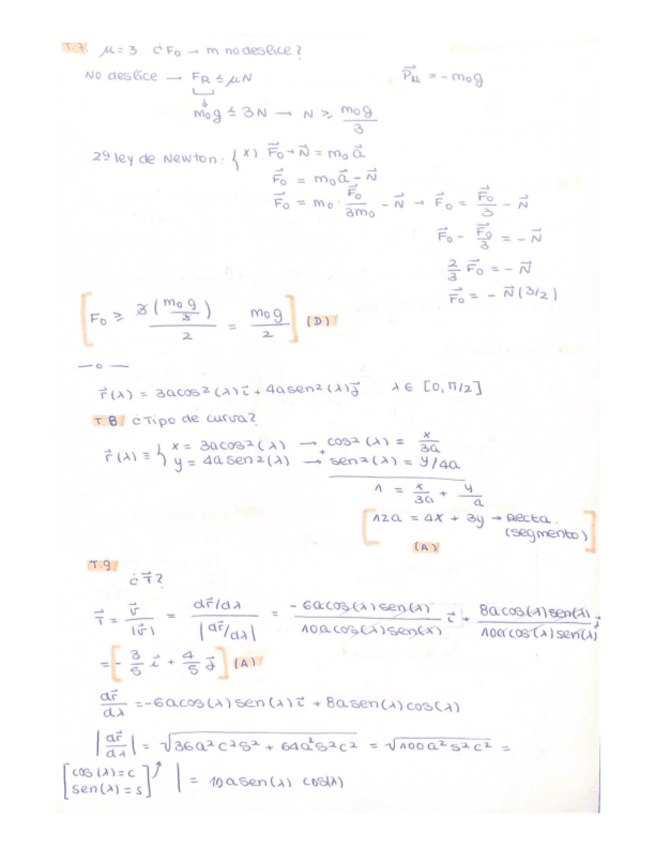 T.7 μ = 3 ¿F₀ → m no deslice?
No deslice → F_R ≤ μN
P⃗_M = - m₀g
m₀g ≤ 3N → N ≥ m₀g/3
2ª ley de Newton: { x) F⃗₀ + N⃗ = m₀a⃗
F⃗₀ = m₀a⃗ - N⃗
F⃗₀ = m₀ · F⃗₀/3m₀ - N⃗ → F⃗₀ = F⃗₀/3 - N⃗
F⃗₀ - F⃗₀/3 = - N⃗
2/3 F⃗₀ = - N⃗
F⃗₀ = - N⃗(3/2)
[F₀ ≥ 3(m₀g/3)/2 = m₀g/2] (D)
—o—
r⃗(λ) = 3acos²(λ)i⃗ + 4asen²(λ)j⃗ λ ∈ [0, π/2]
T.8 ¿Tipo de curva?
r⃗(λ) ≡ { x = 3acos²(λ) → cos²(λ) = x/3a
y = 4asen²(λ) → + sen²(λ) = y/4a
1 = x/3a + y/a
[12a = 4x + 3y → Recta.
(segmento)]
(A)
T.9
¿T⃗?
T⃗ = v⃗/|v⃗| = dr⃗/dλ / |dr⃗/dλ| = -6acos(λ)sen(λ)/10acos(λ)sen(λ) i⃗ + 8acos(λ)sen(λ)/10acos(λ)sen(λ) j⃗
= [- 3/5 i⃗ + 4/5 j⃗] (A)
dr⃗/dλ = -6acos(λ)sen(λ)i⃗ + 8asen(λ)cos(λ)
|dr⃗/dλ| = √36a²c²s² + 64a²s²c² = √100a²s²c² =
[cos(λ) = c
sen(λ) = s] | = 10asen(λ) cos(λ)